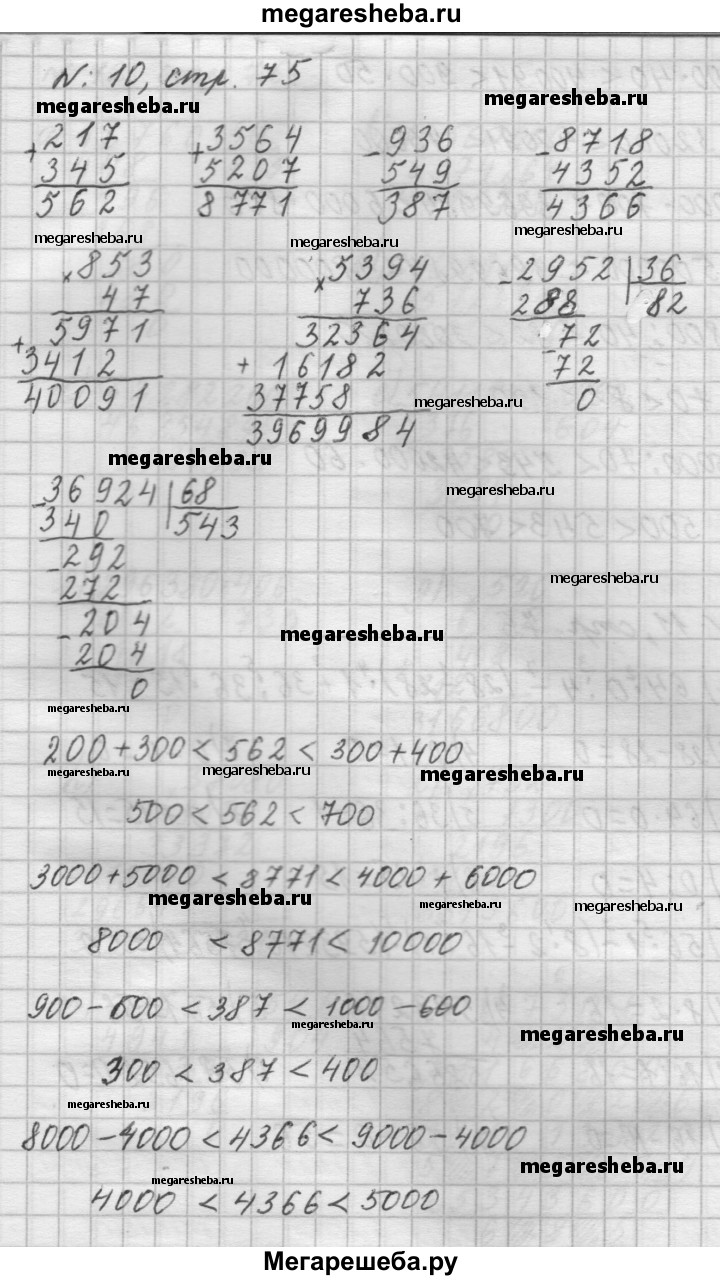 megaresheba.ru
N: 10, стр. 75
megaresheba.ru megaresheba.ru
+ 217 + 3564 - 936 - 8718
345 5207 549 4352
562 8771 387 4366
megaresheba.ru megaresheba.ru megaresheba.ru
× 853 × 5394 - 2952 | 36
47 736 288 82
+ 5971 32364 - 72
3412 + 16182 72
40091 37758 0
megaresheba.ru
3969984
megaresheba.ru
- 36924 | 68
megaresheba.ru
340 543
- 292
272
megaresheba.ru
- 204
megaresheba.ru
204
0
megaresheba.ru
200+300 < 562 < 300+400
megaresheba.ru megaresheba.ru megaresheba.ru
500 < 562 < 700
3000+5000 < 8771 < 4000 + 6000
megaresheba.ru megaresheba.ru megaresheba.ru
8000 < 8771 < 10000
900-600 < 387 < 1000-600
megaresheba.ru megaresheba.ru
300 < 387 < 400
megaresheba.ru
8000-4000 < 4366 < 9000-4000
megaresheba.ru megaresheba.ru
4000 < 4366 < 5000
Мегарешеба.ру